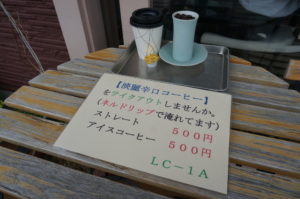 【淡麗辛口コーヒー】
をテイクアウトしませんか。
(ネルドリップで淹れてます)
ストレート　500円
アイスコーヒー　500円
LC-1A